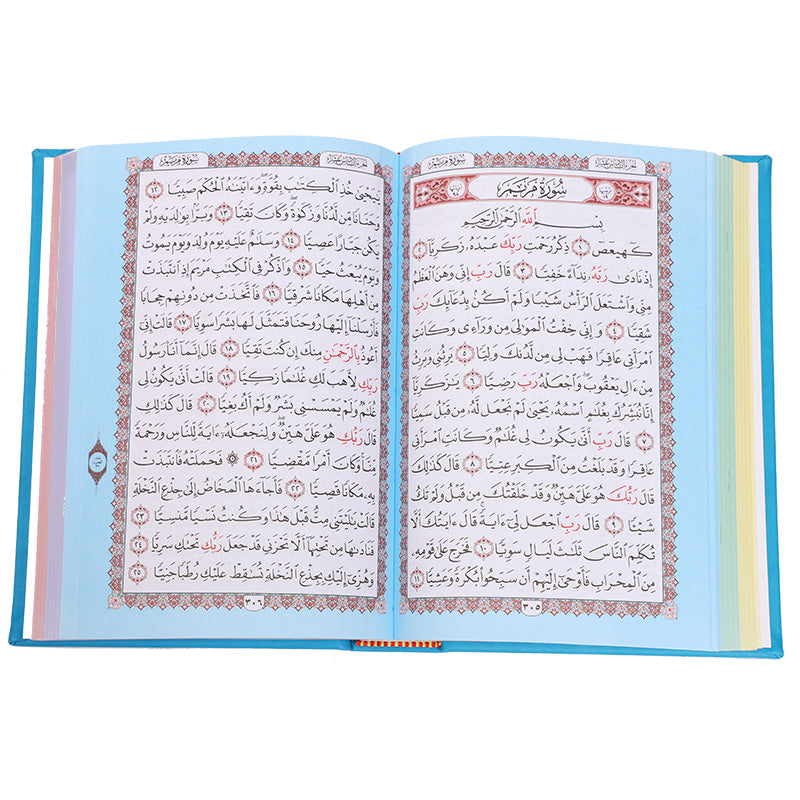 سُورَةُ مَرْيَمَ الجزء السادس عشر
سُورَةُ مَرْيَمَ
بِسْمِ اللَّهِ الرَّحْمَٰنِ الرَّحِيمِ
كٓهيعٓصٓ ١ ذِكْرُ رَحْمَتِ رَبِّكَ عَبْدَهُۥ زَكَرِيَّآ ٢
إِذْ نَادَىٰ رَبَّهُۥ نِدَآءً خَفِيًّا ٣ قَالَ رَبِّ إِنِّى وَهَنَ ٱلْعَظْمُ
مِنِّى وَٱشْتَعَلَ ٱلرَّأْسُ شَيْبًا وَلَمْ أَكُنۢ بِدُعَآئِكَ رَبِّ
شَقِيًّا ٤ وَإِنِّى خِفْتُ ٱلْمَوَٰلِىَ مِن وَرَآءِى وَكَانَتِ
ٱمْرَأَتِى عَاقِرًا فَهَبْ لِى مِن لَّدُنكَ وَلِيًّا ٥ يَرِثُنِى وَيَرِثُ
مِنْ ءَالِ يَعْقُوبَ ۖ وَٱجْعَلْهُ رَبِّ رَضِيًّا ٦ يَٰزَكَرِيَّآ
إِنَّا نُبَشِّرُكَ بِغُلَٰمٍ ٱسْمُهُۥ يَحْيَىٰ لَمْ نَجْعَل لَّهُۥ مِن قَبْلُ سَمِيًّا
٧ قَالَ رَبِّ أَنَّىٰ يَكُونُ لِى غُلَٰمٌ وَكَانَتِ ٱمْرَأَتِى
عَاقِرًا وَقَدْ بَلَغْتُ مِنَ ٱلْكِبَرِ عِتِيًّا ٨ قَالَ كَذَٰلِكَ
قَالَ رَبُّكَ هُوَ عَلَىَّ هَيِّنٌ وَقَدْ خَلَقْتُكَ مِن قَبْلُ وَلَمْ تَكُ
شَيْـًٔا ٩ قَالَ رَبِّ ٱجْعَل لِّىٓ ءَايَةً ۚ قَالَ ءَايَتُكَ أَلَّا
تُكَلِّمَ ٱلنَّاسَ ثَلَٰثَ لَيَالٍ سَوِيًّا ١٠ فَخَرَجَ عَلَىٰ قَوْمِهِۦ
مِنَ ٱلْمِحْرَابِ فَأَوْحَىٰٓ إِلَيْهِمْ أَن سَبِّحُوا۟ بُكْرَةً وَعَشِيًّا ١١
٣٠٥
سُورَةُ مَرْيَمَ الجزء السادس عشر
يَٰيَحْيَىٰ خُذِ ٱلْكِتَٰبَ بِقُوَّةٍ ۖ وَءَاتَيْنَٰهُ ٱلْحُكْمَ صَبِيًّا ١٢
وَحَنَانًا مِّن لَّدُنَّا وَزَكَوٰةً ۖ وَكَانَ تَقِيًّا ١٣ وَبَرًّۢا بِوَٰلِدَيْهِ وَلَمْ
يَكُن جَبَّارًا عَصِيًّا ١٤ وَسَلَٰمٌ عَلَيْهِ يَوْمَ وُلِدَ وَيَوْمَ يَمُوتُ
وَيَوْمَ يُبْعَثُ حَيًّا ١٥ وَٱذْكُرْ فِى ٱلْكِتَٰبِ مَرْيَمَ إِذِ ٱنتَبَذَتْ
مِنْ أَهْلِهَا مَكَانًا شَرْقِيًّا ١٦ فَٱتَّخَذَتْ مِن دُونِهِمْ حِجَابًا
فَأَرْسَلْنَآ إِلَيْهَا رُوحَنَا فَتَمَثَّلَ لَهَا بَشَرًا سَوِيًّا ١٧ قَالَتْ إِنِّىٓ
أَعُوذُ بِٱلرَّحْمَٰنِ مِنكَ إِن كُنتَ تَقِيًّا ١٨ قَالَ إِنَّمَآ أَنَا۠ رَسُولُ
رَبِّكِ لِأَهَبَ لَكِ غُلَٰمًا زَكِيًّا ١٩ قَالَتْ أَنَّىٰ يَكُونُ لِى
غُلَٰمٌ وَلَمْ يَمْسَسْنِى بَشَرٌ وَلَمْ أَكُ بَغِيًّا ٢٠ قَالَ كَذَٰلِكِ
قَالَ رَبُّكِ هُوَ عَلَىَّ هَيِّنٌ ۖ وَلِنَجْعَلَهُۥٓ ءَايَةً لِّلنَّاسِ وَرَحْمَةً
مِّنَّا ۚ وَكَانَ أَمْرًا مَّقْضِيًّا ٢١ ۞ فَحَمَلَتْهُ فَٱنتَبَذَتْ
بِهِۦ مَكَانًا قَصِيًّا ٢٢ فَأَجَآءَهَا ٱلْمَخَاضُ إِلَىٰ جِذْعِ ٱلنَّخْلَةِ
قَالَتْ يَٰلَيْتَنِى مِتُّ قَبْلَ هَٰذَا وَكُنتُ نَسْيًا مَّنسِيًّا ٢٣
فَنَادَىٰهَا مِن تَحْتِهَآ أَلَّا تَحْزَنِى قَدْ جَعَلَ رَبُّكِ تَحْتَكِ سَرِيًّا ٢٤
وَهُزِّىٓ إِلَيْكِ بِجِذْعِ ٱلنَّخْلَةِ تُسَٰقِطْ عَلَيْكِ رُطَبًا جَنِيًّا ٢٥
٣٠٦